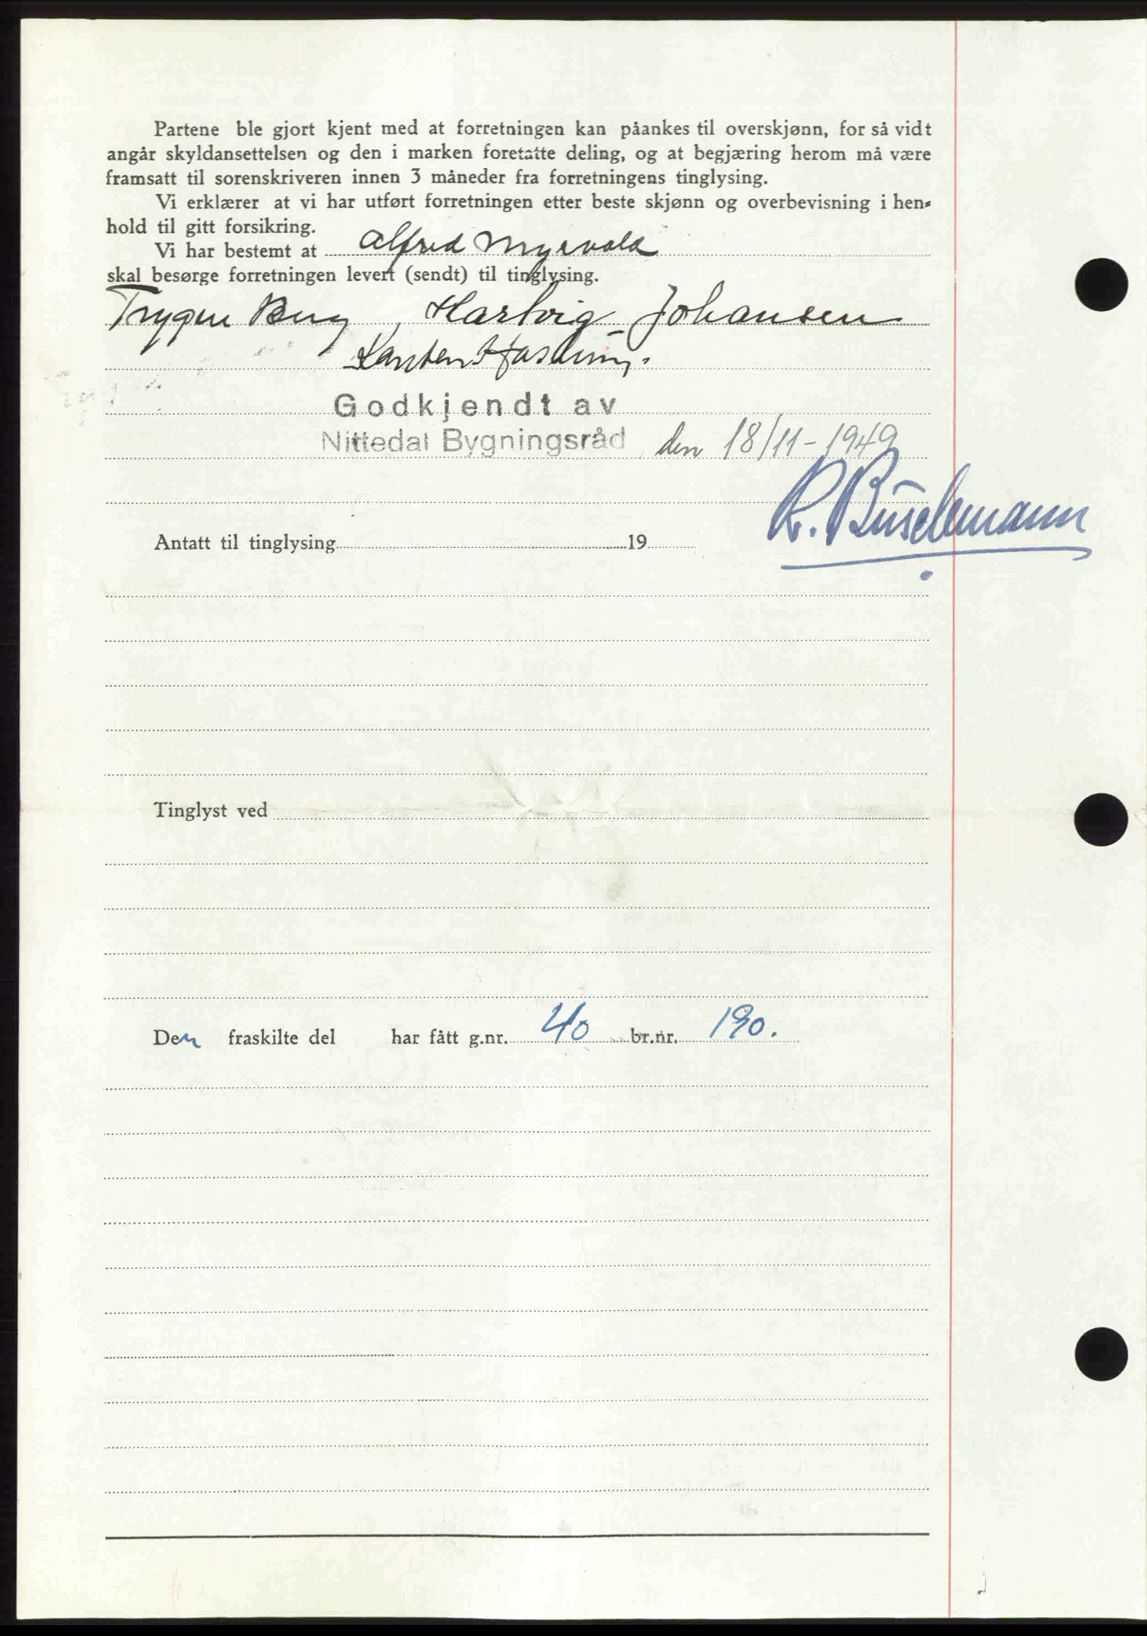 Partene ble gjort kjent med at forretningen kan påankes til overskjønn, for så vidt
angår skyldansettelsen og den i marken foretatte deling, og at begjæring herom må være
framsatt til sorenskriveren innen 3 måneder fra forretningens tinglysing.
Vi erklærer at vi har utført forretningen etter beste skjønn og overbevisning i hen-
hold til gitt forsikring.
Vi har bestemt at Alfred Myrvold
skal besørge forretningen levert (sendt) til tinglysing.
Trygve Berg, Hartvig Johansen
Godkjendt av
Nittedal Bygningsråd den 18/11-1949
R. Buselmann
Antatt til tinglysing 19
Tinglyst ved
Den fraskilte del har fått g.nr. 40 br.nr. 190.